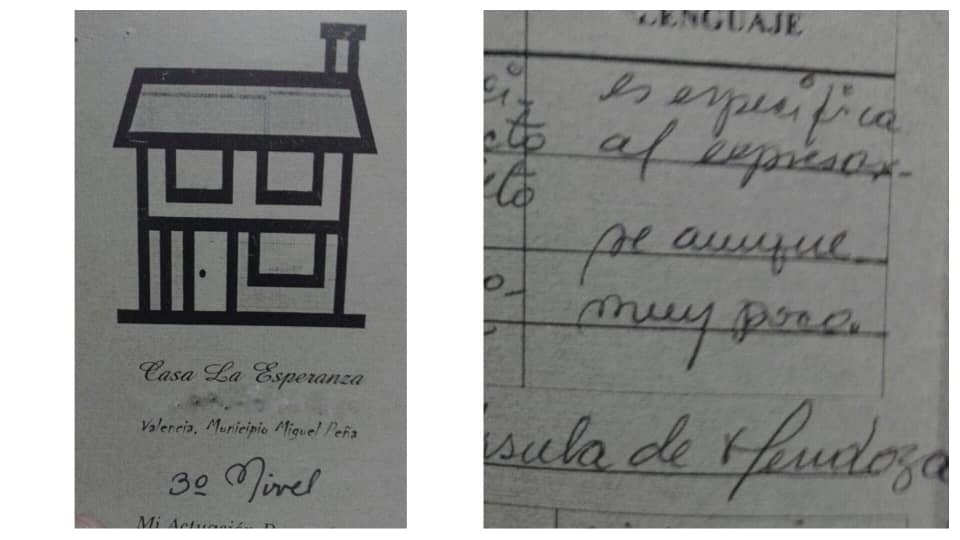 Casa La Esperanza
Valencia, Municipio Miguel Peña
3º Nivel
Mi Actuación
LENGUAJE
es especifica
al expresar-
se aunque
muy poco.
de Mendoza